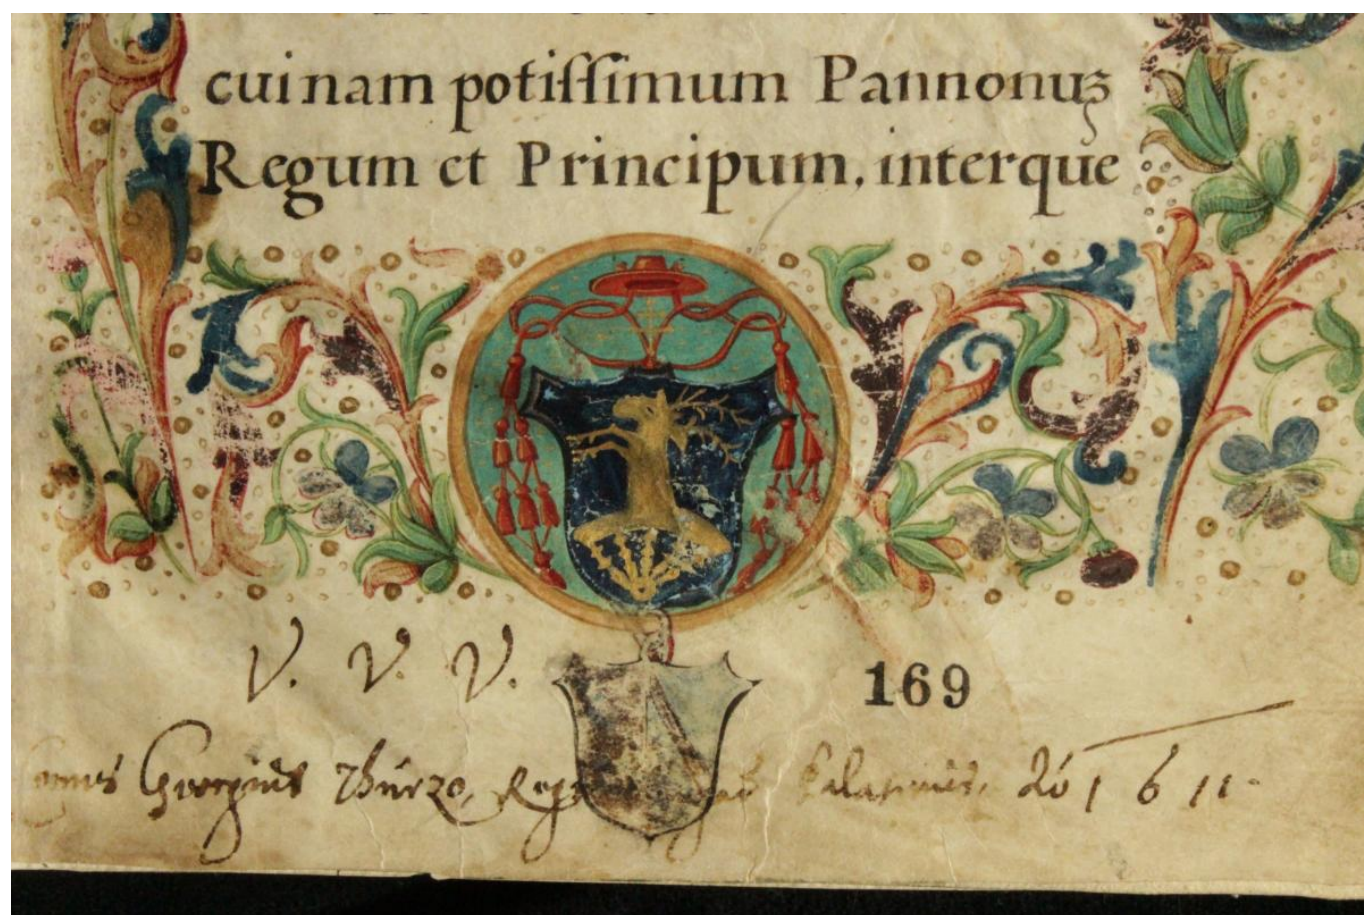 cuinam potissimum Pannonuȝ
Regum et Principum, interque
V. V. V.
169
Georgius Thurzo, Palatinus, 1611.